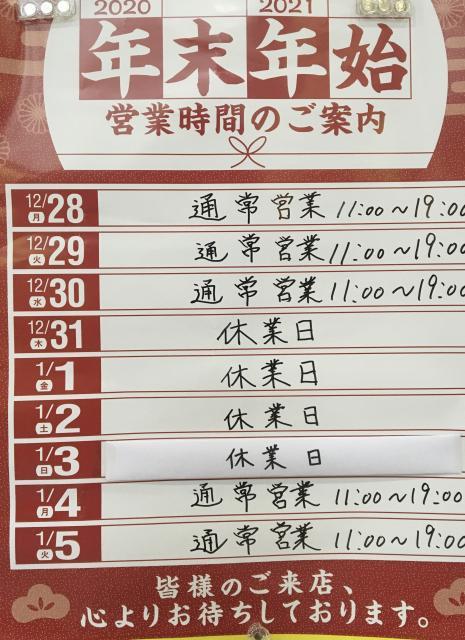 2020 2021
年末年始
営業時間のご案内
12/28 月 通常営業 11:00〜19:00
12/29 火 通常営業 11:00〜19:00
12/30 水 通常営業 11:00〜19:00
12/31 木 休業日
1/1 金 休業日
1/2 土 休業日
1/3 日 休業日
1/4 月 通常営業 11:00〜19:00
1/5 火 通常営業 11:00〜19:00
皆様のご来店、
心よりお待ちしております。